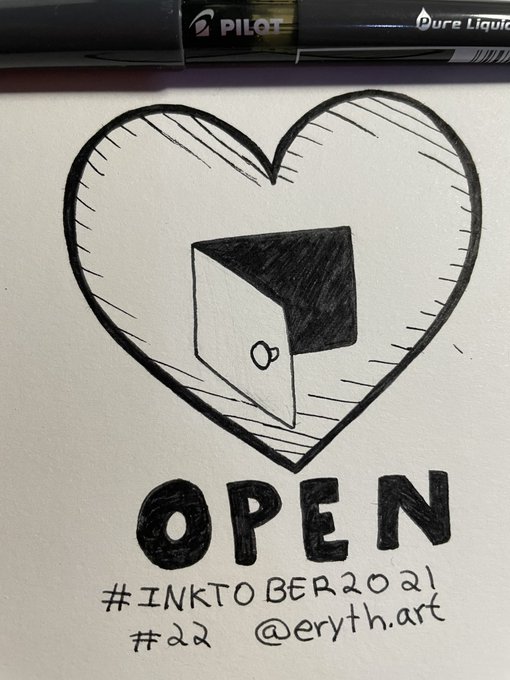 PILOT Pure Liquid
OPEN
#INKTOBER2021
#22 @eryth.art